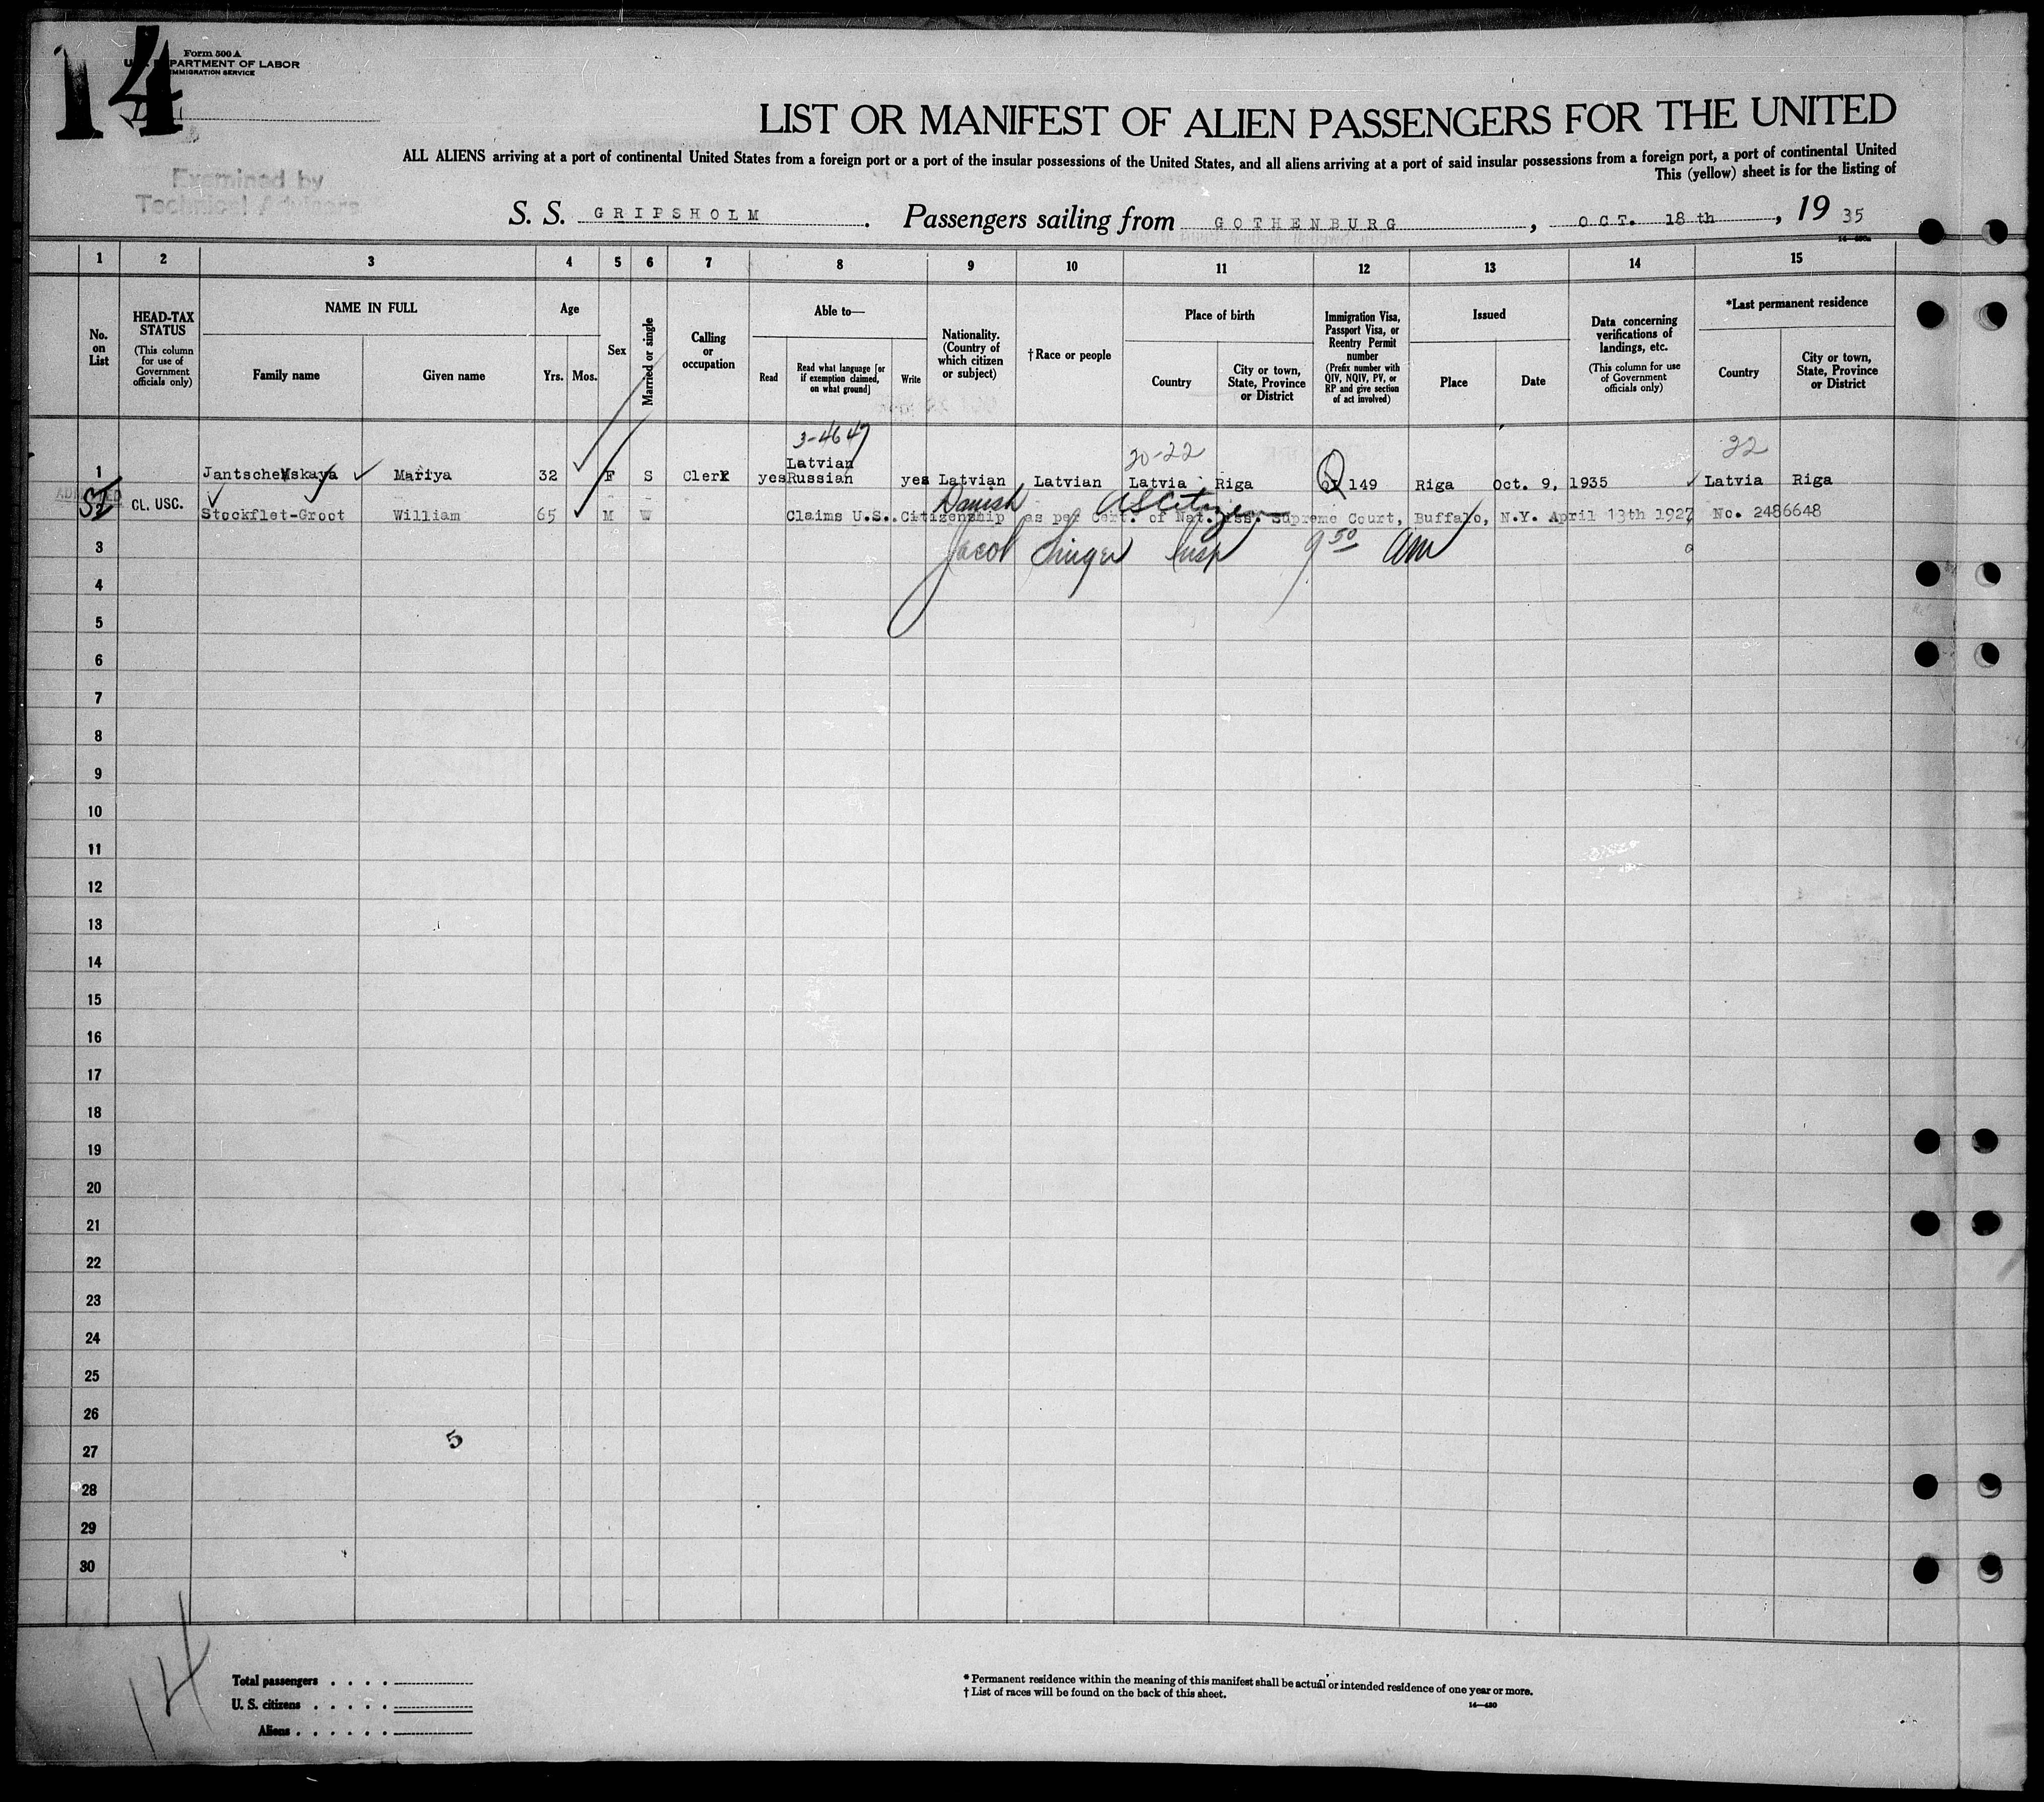 14
Form 500 A
U. S. DEPARTMENT OF LABOR
IMMIGRATION SERVICE
LIST OR MANIFEST OF ALIEN PASSENGERS FOR THE UNITED
ALL ALIENS arriving at a port of continental United States from a foreign port or a port of the insular possessions of the United States, and all aliens arriving at a port of said insular possessions from a foreign port, a port of continental United
This (yellow) sheet is for the listing of
Examined by
Technical Advisers
S. S. GRIPSHOLM. Passengers sailing from GOTHENBURG, OCT. 18 th, 19 35
14—430a
1 2 3 4 5 6 7 8 9 10 11 12 13 14 15
No. on List
HEAD-TAX STATUS
(This column for use of Government officials only)
NAME IN FULL
Family name Given name
Age
Yrs. Mos.
Sex
Married or single
Calling or occupation
Able to—
Read
Read what language [or if exemption claimed, on what ground]
Write
Nationality. (Country of which citizen or subject)
†Race or people
Place of birth
Country
City or town, State, Province or District
Immigration Visa, Passport Visa, or Reentry Permit number
(Prefix number with QIV, NQIV, PV, or RP and give section of act involved)
Issued
Place Date
Data concerning verifications of landings, etc.
(This column for use of Government officials only)
*Last permanent residence
Country
City or town, State, Province or District
3-4647 20-22 22
1 Jantschewskaya Mariya 32 F S Clerk yes Latvian Russian yes Latvian Latvian Latvia Riga 149 Riga Oct. 9, 1935 Latvia Riga
Danish US Citizen
ADMITTED
2 CL. USC. Stockflet-Groot William 65 M W Claims U.S. Citizenship as per Cert. of Nat. iss. Supreme Court, Buffalo, N.Y. April 13th 1927 No. 2486648
3 Jacob Singer Insp 9 50 am
4
5
6
7
8
9
10
11
12
13
14
15
16
17
18
19
20
21
22
23
24
25
26
5
27
28
29
30
14
Total passengers
U. S. citizens
Aliens
* Permanent residence within the meaning of this manifest shall be actual or intended residence of one year or more.
† List of races will be found on the back of this sheet.
14—430